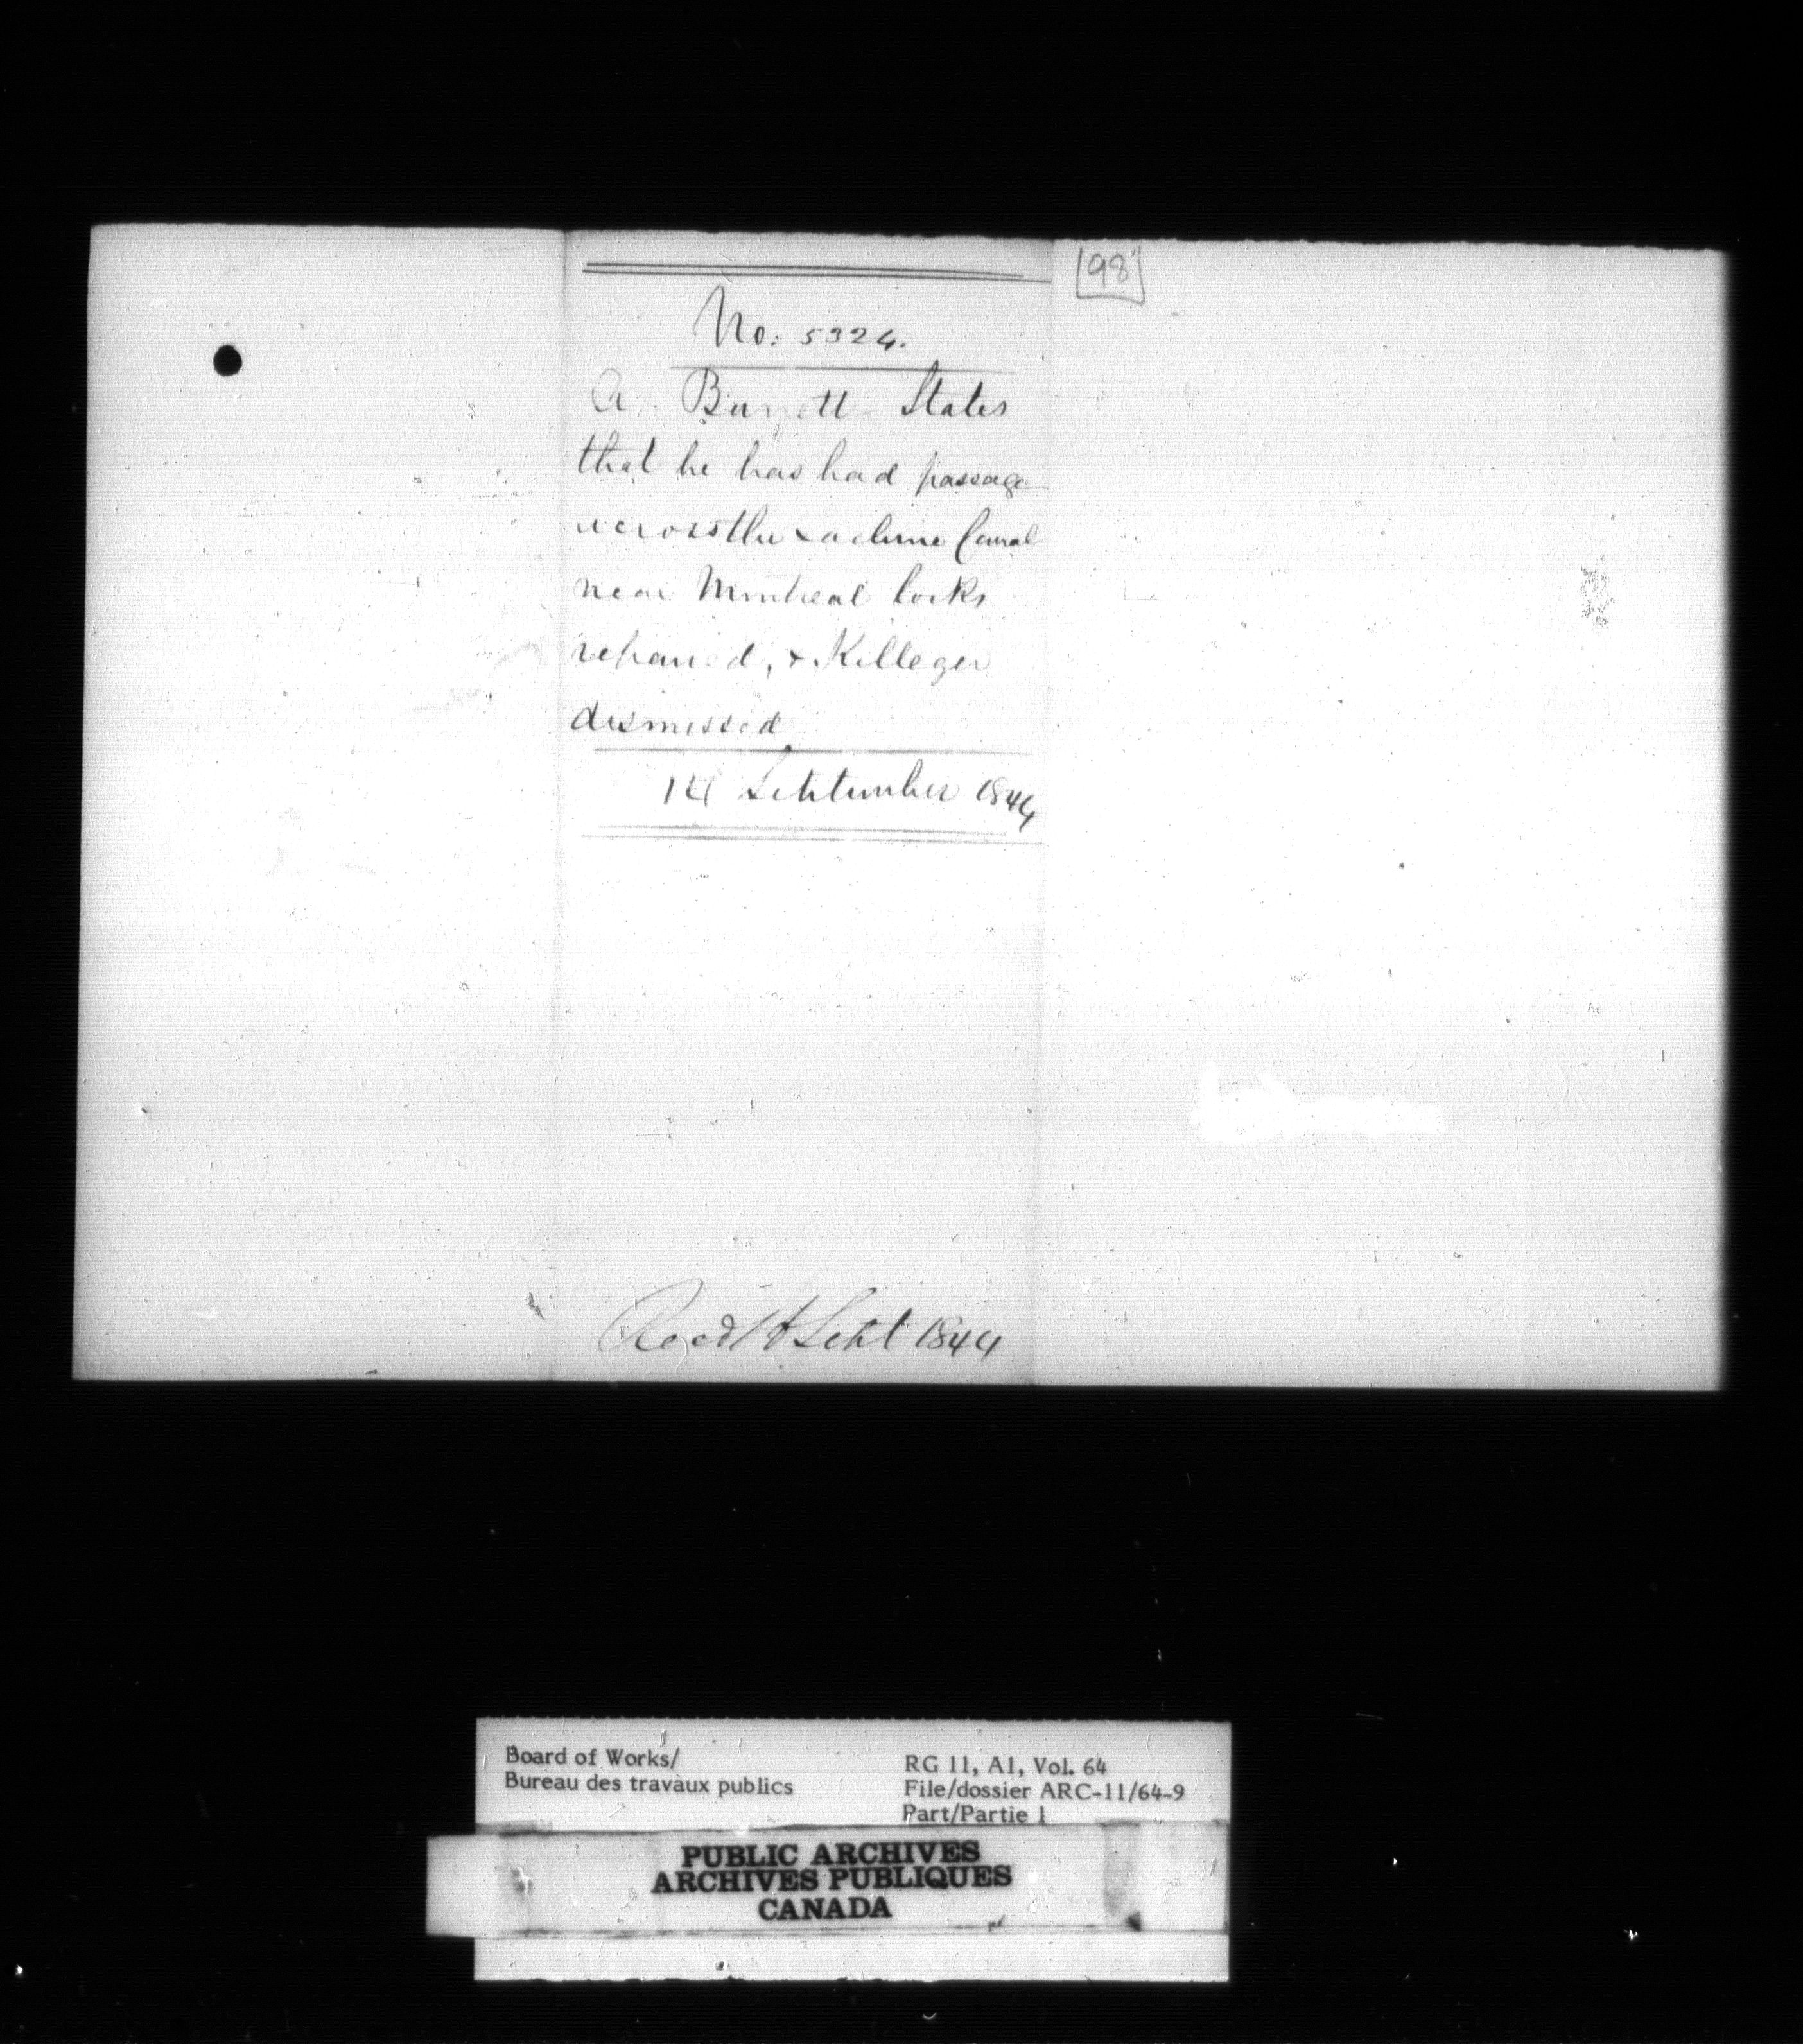 98
No: 5324.
A. Burnett States
that he has had passage
across the Lachine Canal
near Montreal locks
repaired, & Killeger
dismissed
14 September 1844
Recd 14 Sept 1844
Board of Works/
Bureau des travaux publics
RG 11, A1, Vol. 64
File/dossier ARC-11/64-9
Part/Partie 1
PUBLIC ARCHIVES
ARCHIVES PUBLIQUES
CANADA